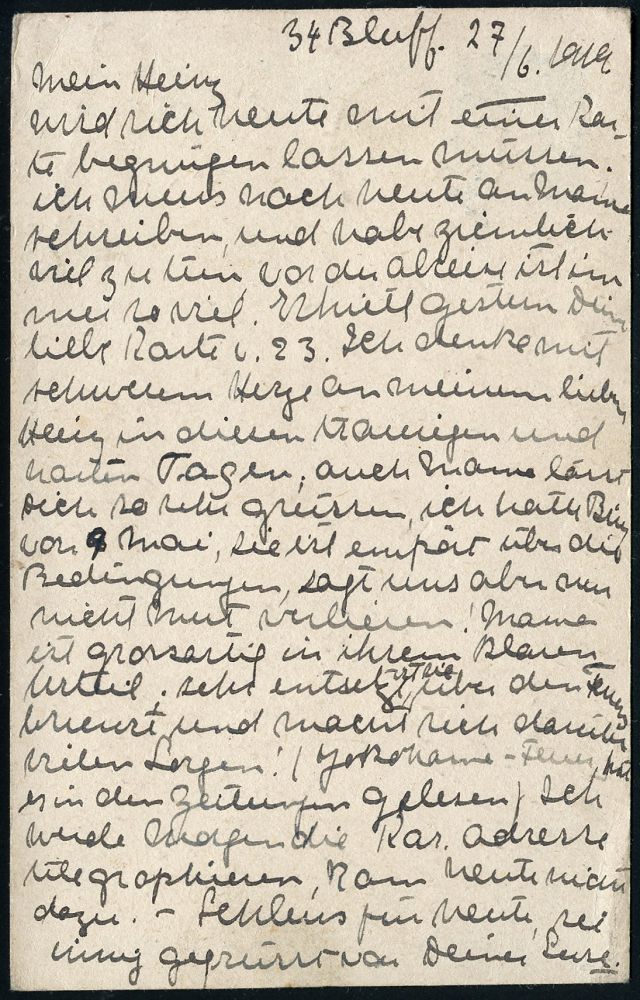 34 Bluff. 27/6. 1919
Mein Heinz
wird sich heute mit einer Kar-
te begnügen lassen müssen.
ich muss noch heute an Mama
schreiben, und habe ziemlich
viel zu tun, vor der Abreise ist im
mer so viel. Erhielt gestern Deine
liebe Karte v. 23. Ich denke mit
schwerem Herze an meinen lieben
Heinz in diesen traurigen und
harten Tagen, auch Mama lässt
Dich so sehr grüssen, ich hatte
von 9 Mai, sie ist empört über die
Bedingungen, sagt uns aber nur
nicht Mut verlieren! Mama
ist grossartig in ihrem klaren
Urteil, sehr entsetzt ist sie über den
und macht sich darüber
vielen Sorgen! (Yokohama-Feuer, hat
es in den Zeitungen gelesen) Ich
werde Morgen die Kar. Adresse
telegraphieren, kam heute nicht
dazu. – Schluss für heute, sei
innig gegrüsst von Deiner